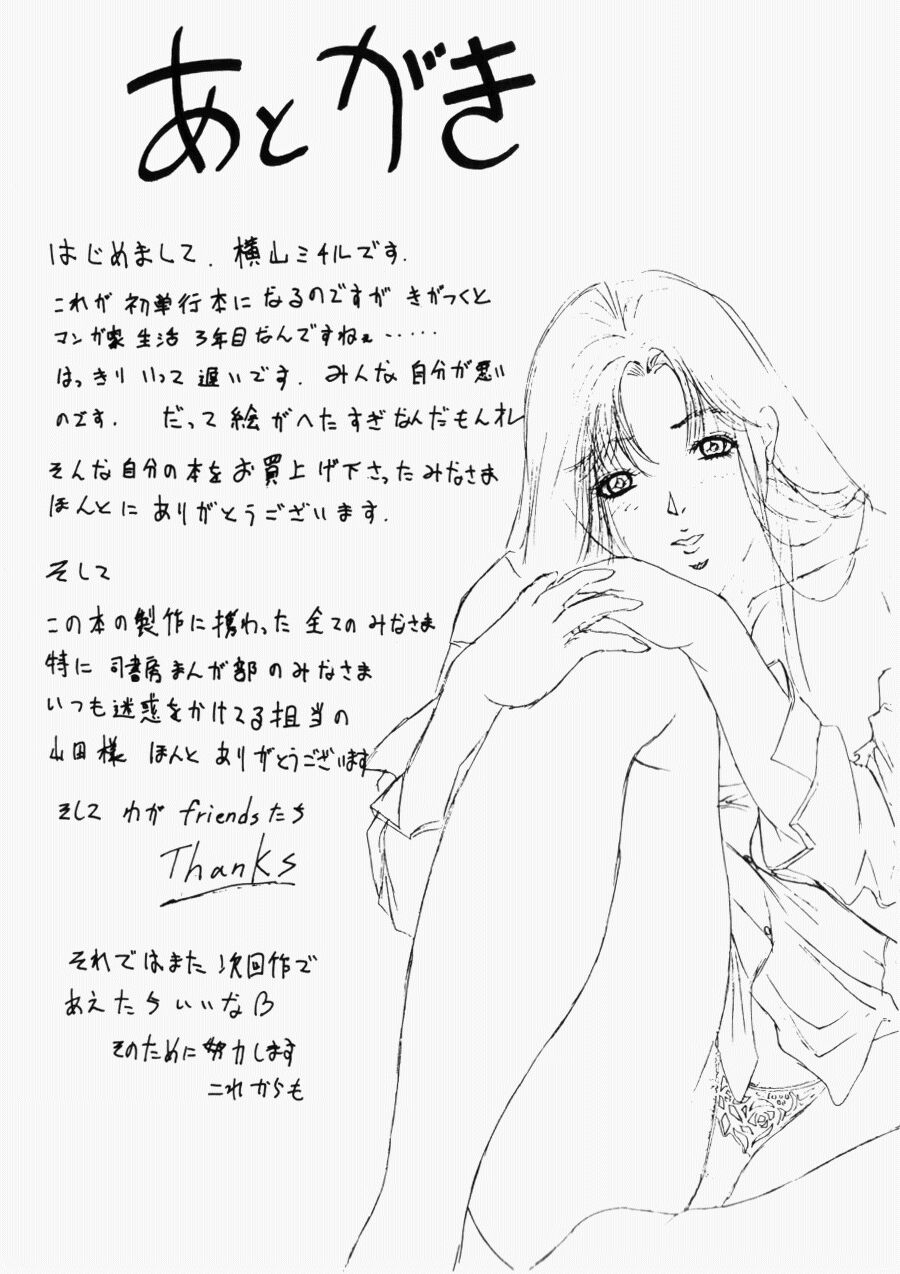 あとがき
はじめまして、横山ミチルです。
これが初単行本になるのですが きがつくと
マンガ家生活3年目なんですねぇ‥‥‥
はっきりいって遅いです。みんな自分が悪い
のです。 だって絵がへたすぎなんだもんオレ
そんな自分の本をお買上げ下さったみなさま
ほんとにありがとうございます。
そして
この本の製作に携わった全てのみなさま
特に司書房まんが部のみなさま
いつも迷惑をかけてる担当の
山田様 ほんとありがとうございます
そして わが friendsたち
Thanks
それではまた次回作で
あえたらいいなβ
そのために努力します
これからも